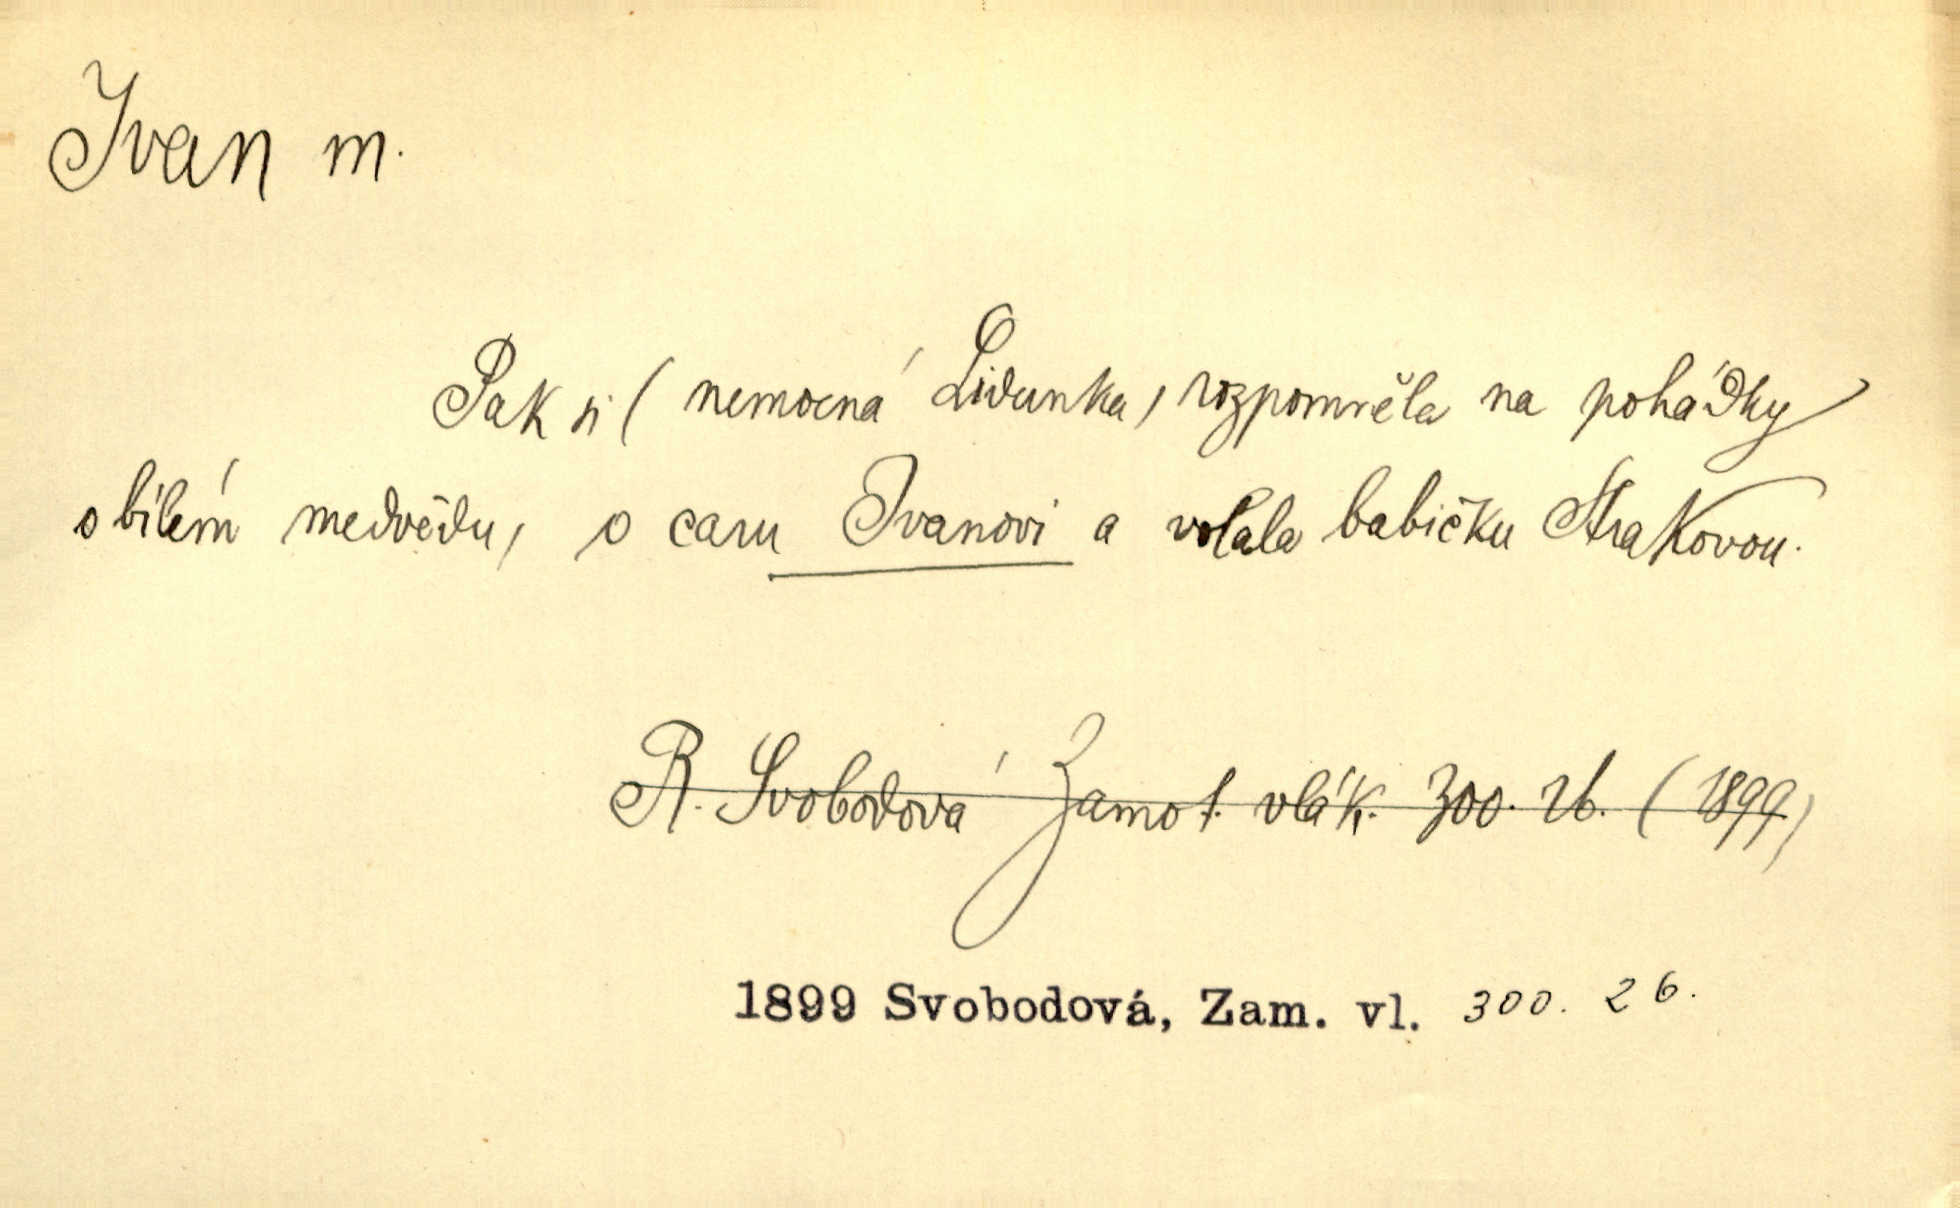 Ivan m.
Pak si (nemocná Lidunka) rozpomněla na pohádky
o bílém medvědu, o caru Ivanovi a volala babičku Strakovou.
R. Svobodová Zamot. vlák. 300. 26. (1899)
1899 Svobodová, Zam. vl. 300. 26.